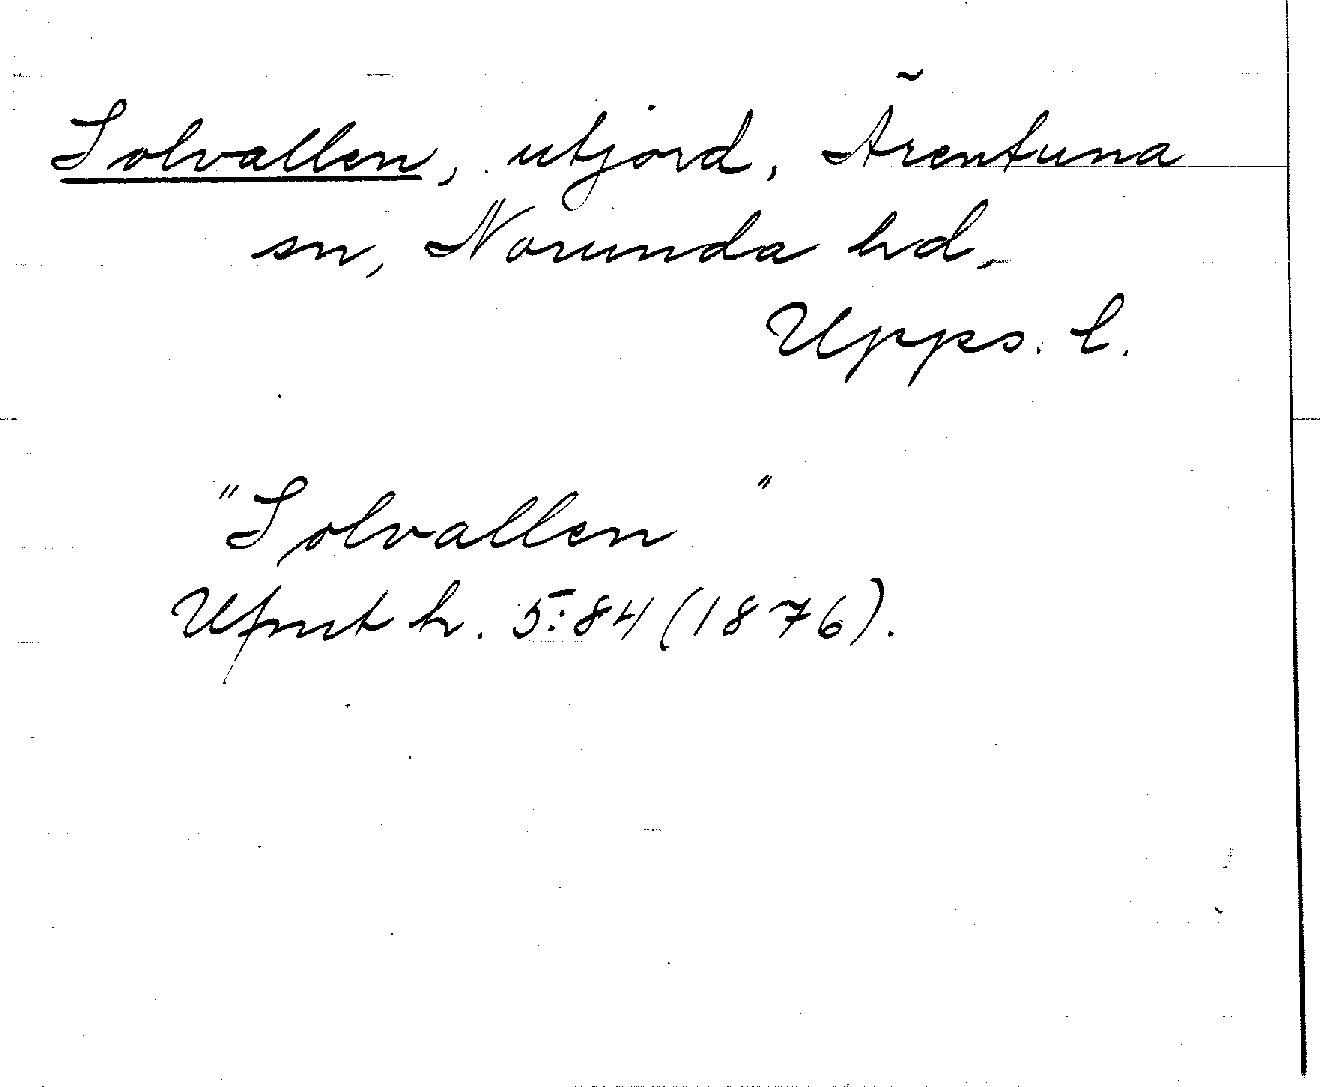 Solvallen, utjord, Ärentuna
sn, Norunda hd,
Upps. l.
"Solvallen "
Ufmt h. 5:84 (1876).